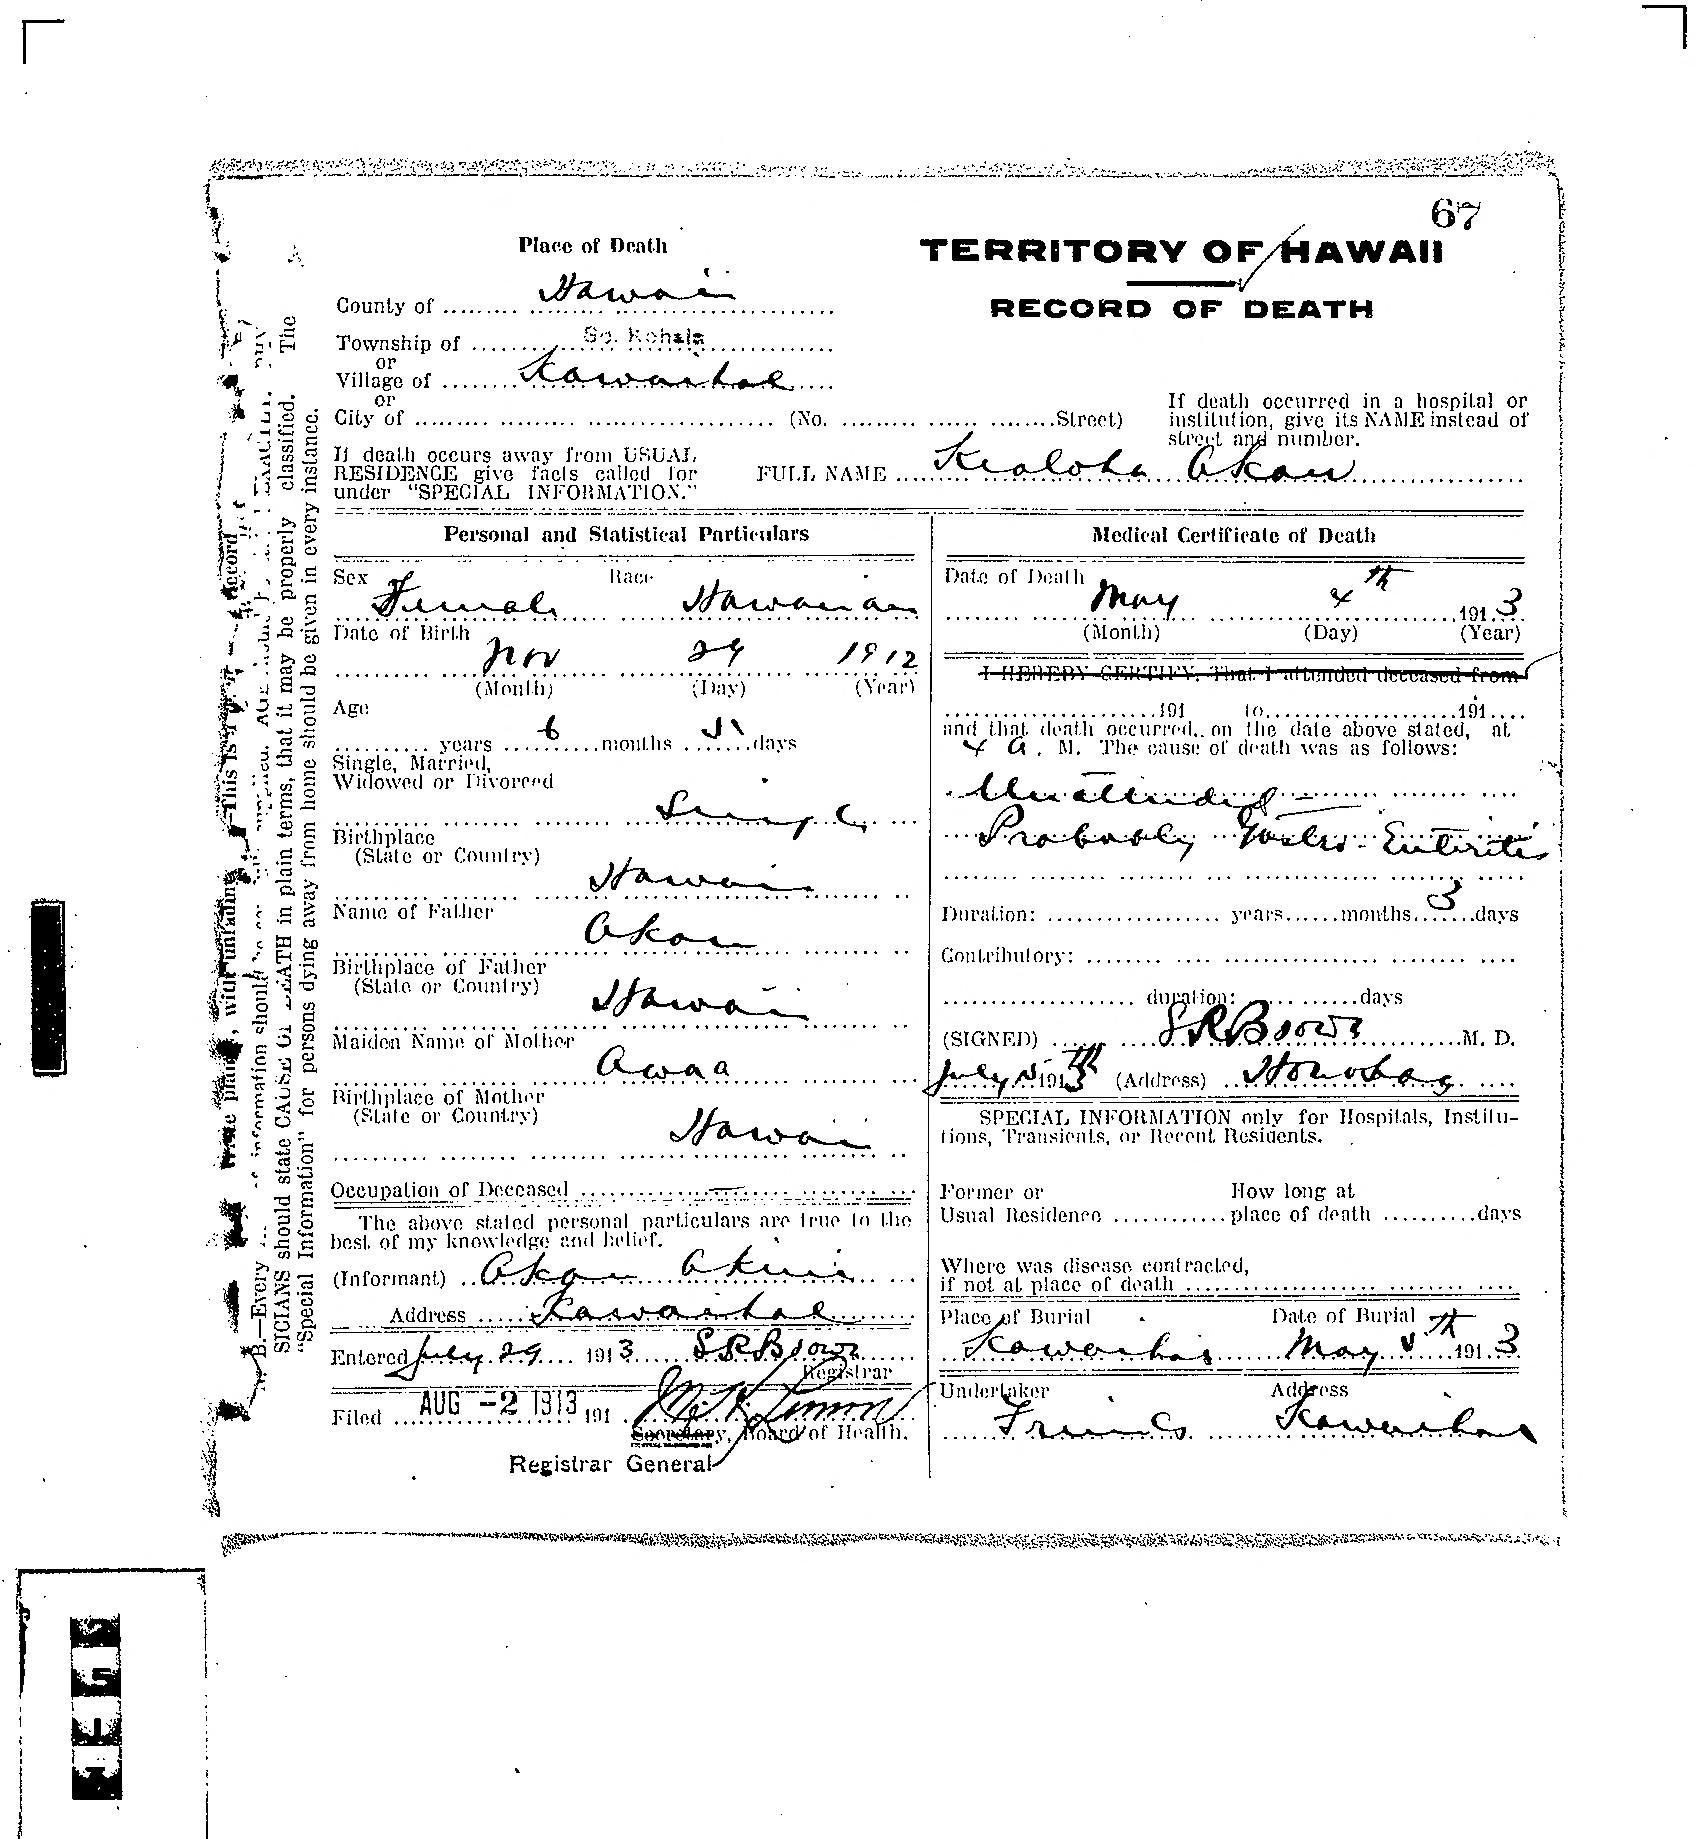 67
Place of Death
TERRITORY OF HAWAII
County of Hawaii
RECORD OF DEATH
Township of So. Kohala
or
Village of Kawaihae
or
City of (No. Street)
If death occurred in a hospital or
institution, give its NAME instead of
street and number.
If death occurs away from USUAL
RESIDENCE give facts called for
under "SPECIAL INFORMATION."
FULL NAME Kealoha Akau
Personal and Statistical Particulars
Sex Female Race Hawaiian
Date of Birth
Nov 29 1912
(Month) (Day) (Year)
Age
years 6 months 5 days
Single, Married,
Widowed or Divorced
Single
Birthplace
(State or Country)
Hawaii
Name of Father
Akau
Birthplace of Father
(State or Country)
Hawaii
Maiden Name of Mother
Awaa
Birthplace of Mother
(State or Country)
Hawaii
Occupation of Deceased —
The above stated personal particulars are true to the
best of my knowledge and belief.
(Informant) Akau
Address Kawaihae
Entered July 29 1913 S R Brown
Registrar
Filed AUG -2 1913 191
Secretary, Board of Health.
Registrar General
Medical Certificate of Death
Date of Death
May 4th 1913
(Month) (Day) (Year)
I HEREBY CERTIFY, That I attended deceased from
191 to 191
and that death occurred, on the date above stated, at
4 A. M. The cause of death was as follows:
Unattended —
Probably Gastro-Enteritis
Duration: years months 3 days
Contributory:
duration: days
(SIGNED) S R Brown M. D.
July 5th 1913 (Address)
SPECIAL INFORMATION only for Hospitals, Institu-
tions, Transients, or Recent Residents.
Former or
Usual Residence
How long at
place of death days
Where was disease contracted,
if not at place of death
Place of Burial Date of Burial
Kawaihae May 5th 1913
Undertaker Address
Friends Kawaihae
SICIANS should state CAUSE OF DEATH in plain terms, that it may be properly classified. The
"Special Information" for persons dying away from home should be given in every instance.